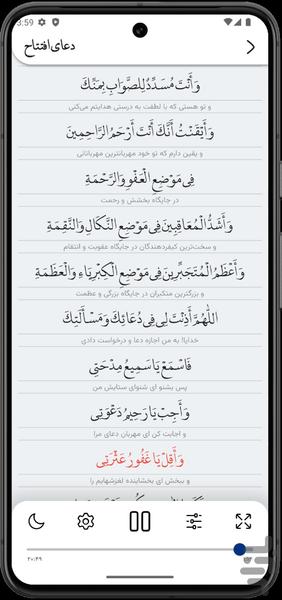 3:59
دعای افتتاح
وَأَنْتَ مُسَدِّدٌ لِلصَّوَابِ بِمَنِّكَ
و تو هستی که با لطفت به درستی هدایتم می‌کنی
وَأَيْقَنْتُ أَنَّكَ أَنْتَ أَرْحَمُ الرَّاحِمِينَ
و یقین دارم که تو خود مهربانترین مهربانانی
فِي مَوْضِعِ الْعَفْوِ وَالرَّحْمَةِ
در جایگاه بخشش و رحمت
وَأَشَدُّ الْمُعَاقِبِينَ فِي مَوْضِعِ النَّكَالِ وَالنَّقِمَةِ
و سخت‌ترین کیفردهندگان در جایگاه عقوبت و انتقام
وَأَعْظَمُ الْمُتَجَبِّرِينَ فِي مَوْضِعِ الْكِبْرِيَاءِ وَالْعَظَمَةِ
و بزرگترین متکبران در جایگاه بزرگی و عظمت
اللَّهُمَّ أَذِنْتَ لِي فِي دُعَائِكَ وَمَسْأَلَتِكَ
خدایا! به من اجازه دعا و درخواست دادی
فَاسْمَعْ يَا سَمِيعُ مِدْحَتِي
پس بشنو ای شنوای ستایش من
وَأَجِبْ يَا رَحِيمُ دَعْوَتِي
و اجابت کن ای مهربان دعای مرا
وَأَقِلْ يَا غَفُورُ عَثْرَتِي
و ببخش ای بخشاینده لغزشهایم را
۲۰:۴۹